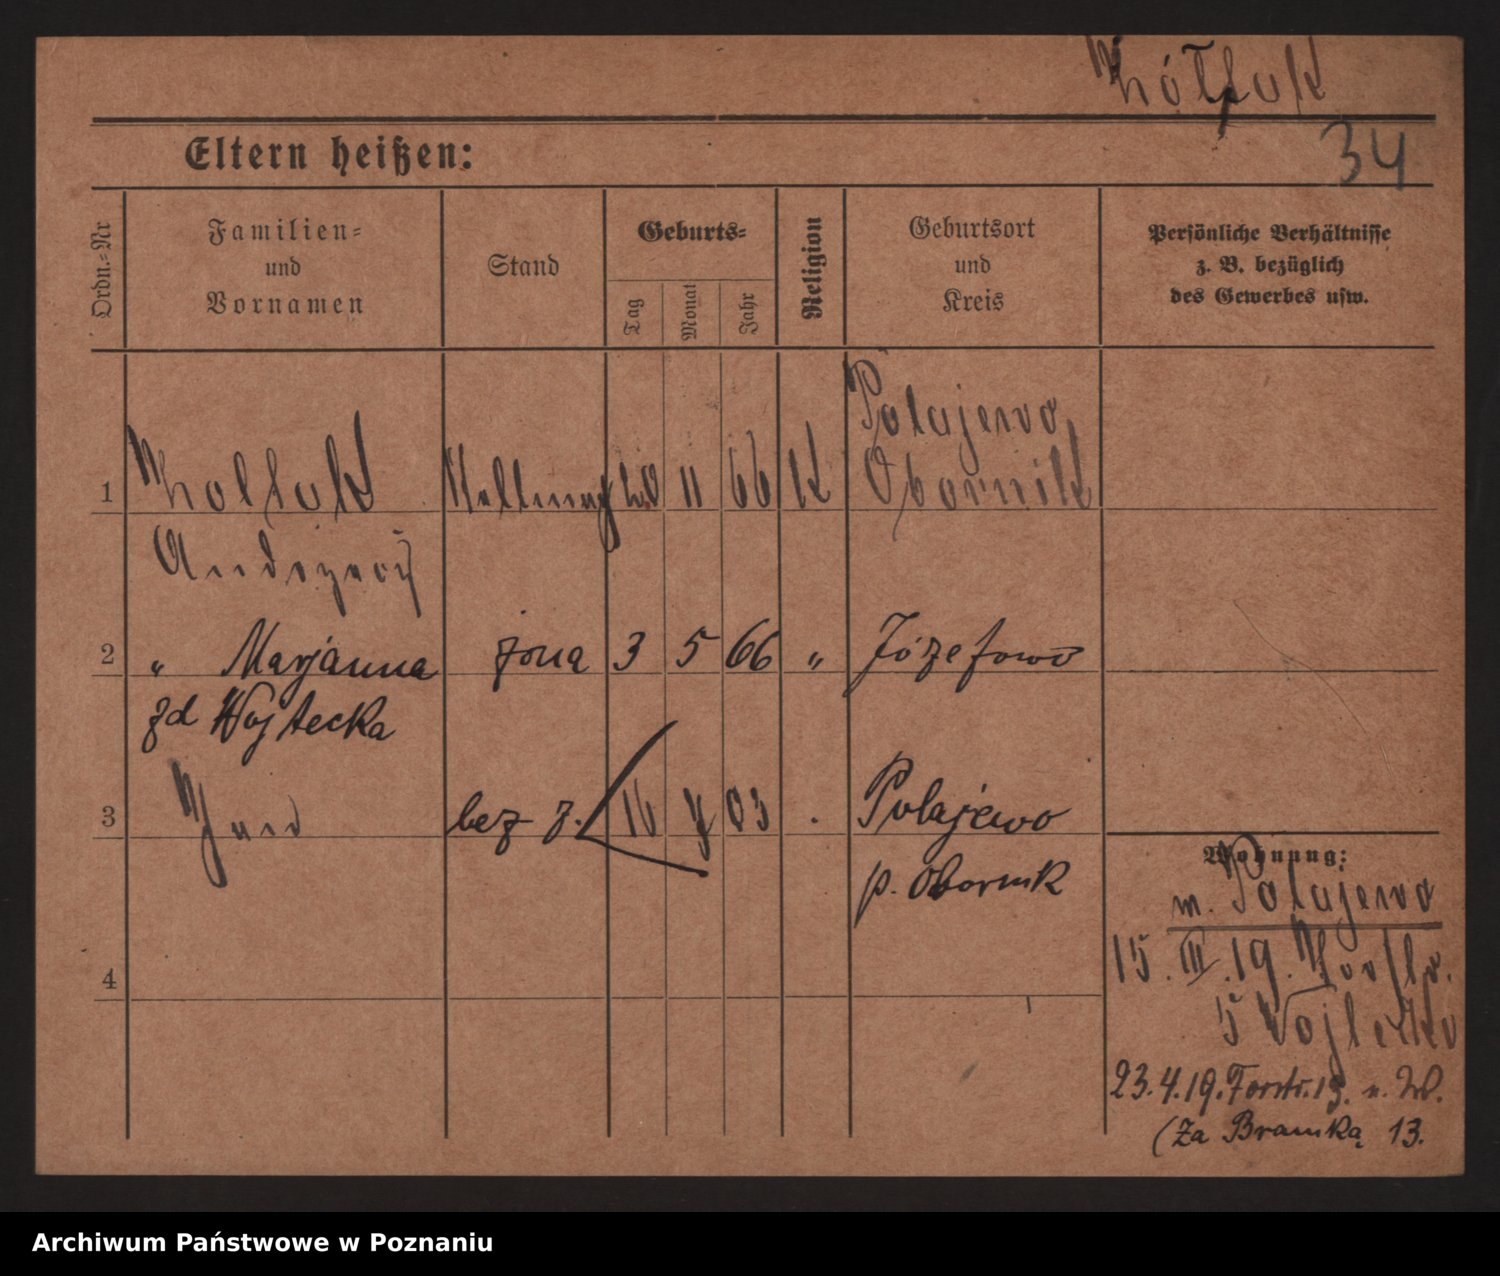 34
Eltern heißen:
Ordn.-Nr
Familien-
und
Vornamen
Stand
Geburts-
Tag
Monat
Jahr
Religion
Geburtsort
und
Kreis
Persönliche Verhältnisse
z. B. bezüglich
des Gewerbes usw.
1
11 66 K Polajewo
Obornik
Andrzej
2 " Marjanna żona 3 5 66 " Józefowo
zd Wojtecka
3 bez z. 16 03 Polajewo
p. Obornik
4
Wohnung:
m. Polajewo
15. III. 19.
5
23.4.19. Forstr. 13. W.
(Za Bramką 13.
Archiwum Państwowe w Poznaniu